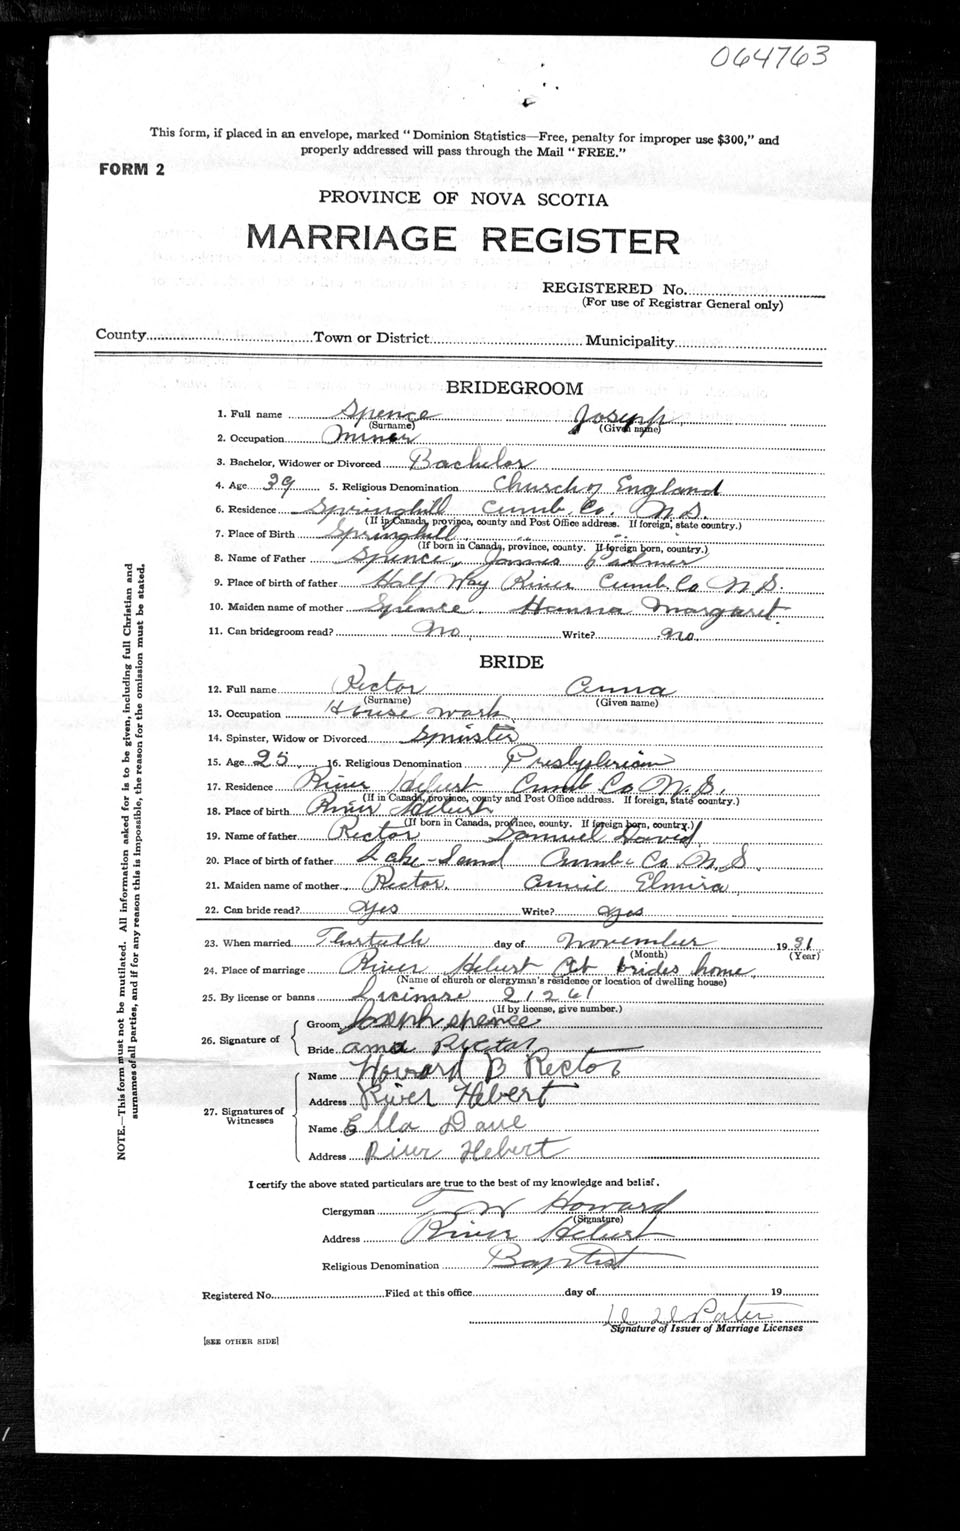 064763
This form, if placed in an envelope, marked "Dominion Statistics—Free, penalty for improper use $300," and
properly addressed will pass through the Mail "FREE."
FORM 2
PROVINCE OF NOVA SCOTIA
MARRIAGE REGISTER
REGISTERED No.
(For use of Registrar General only)
County Town or District Municipality
BRIDEGROOM
1. Full name Spence Joseph
(Surname) (Given name)
2. Occupation Miner
3. Bachelor, Widower or Divorced Bachelor
4. Age 39 5. Religious Denomination Church of England
6. Residence Springhill Cumb. Co. N.S.
(If in Canada, province, county and Post Office address. If foreign, state country.)
7. Place of Birth Springhill " " "
(If born in Canada, province, county. If foreign born, country.)
8. Name of Father Spence, James Palmer
9. Place of birth of father Half Way River Cumb Co N.S.
10. Maiden name of mother Spence Hanna Margaret
11. Can bridegroom read? No Write? No
BRIDE
12. Full name Rector Anna
(Surname) (Given name)
13. Occupation House work
14. Spinster, Widow or Divorced Spinster
15. Age 25 16. Religious Denomination Presbyterian
17. Residence River Hebert Cumb Co N.S.
(If in Canada, province, county and Post Office address. If foreign, state country.)
18. Place of birth River Hebert
(If born in Canada, province, county. If foreign born, country.)
19. Name of father Rector Samuel David
20. Place of birth of father Cumb. Co N.S
21. Maiden name of mother Rector. Annie Elmira
22. Can bride read? Yes Write? Yes
23. When married day of November 1931
(Month) (Year)
24. Place of marriage River Hebert At brides home
(Name of church or clergyman's residence or location of dwelling house)
25. By license or banns License 21261
(If by license, give number.)
26. Signature of
Groom Joseph spence
Bride anna Rector
27. Signatures of Witnesses
Name Howard B Rector
Address River Hebert
Name Ella
Address River Hebert
I certify the above stated particulars are true to the best of my knowledge and belief.
Clergyman T W Howard
(Signature)
Address River Hebert
Religious Denomination Baptist
Registered No. Filed at this office day of 19
Porter
Signature of Issuer of Marriage Licenses
[SEE OTHER SIDE]
NOTE.—This form must not be mutilated. All information asked for is to be given, including full Christian and
surnames of all parties, and if for any reason this is impossible, the reason for the omission must be stated.